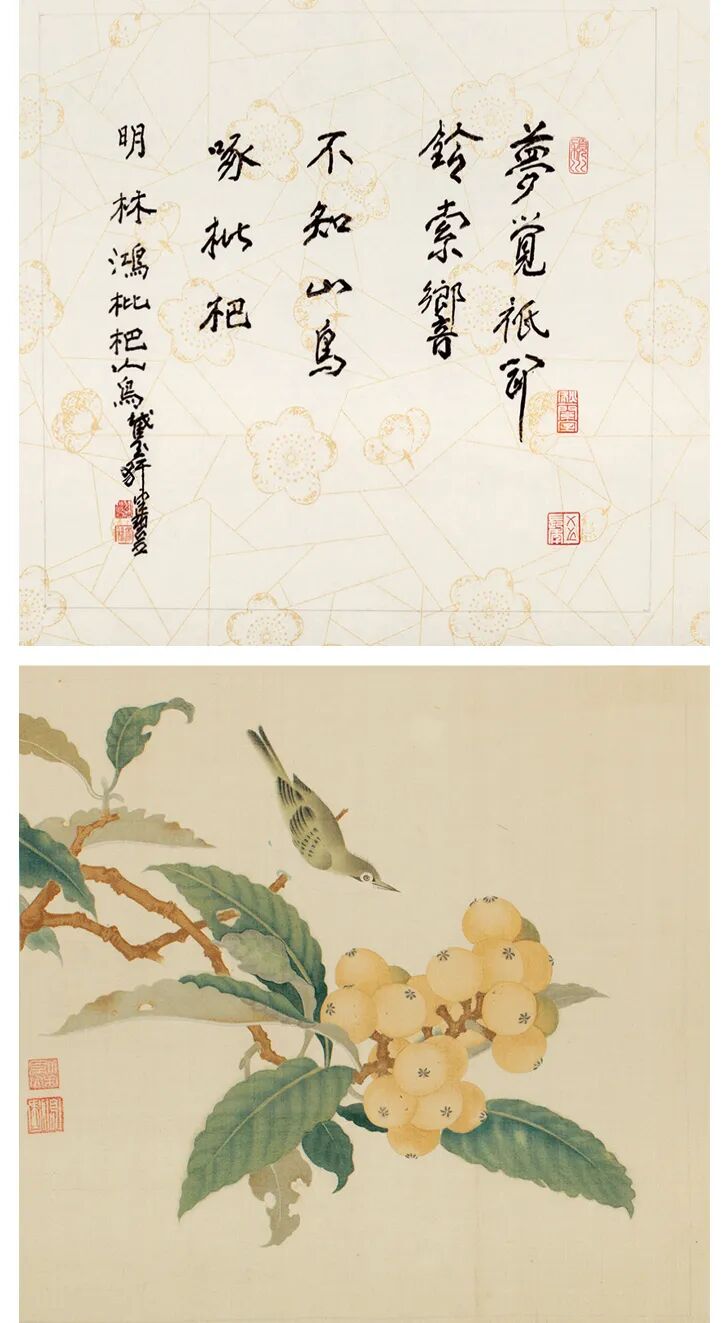 夢覺祇聞
鈴索響
不知山鳥
啄枇杷
明林鴻枇杷山鳥